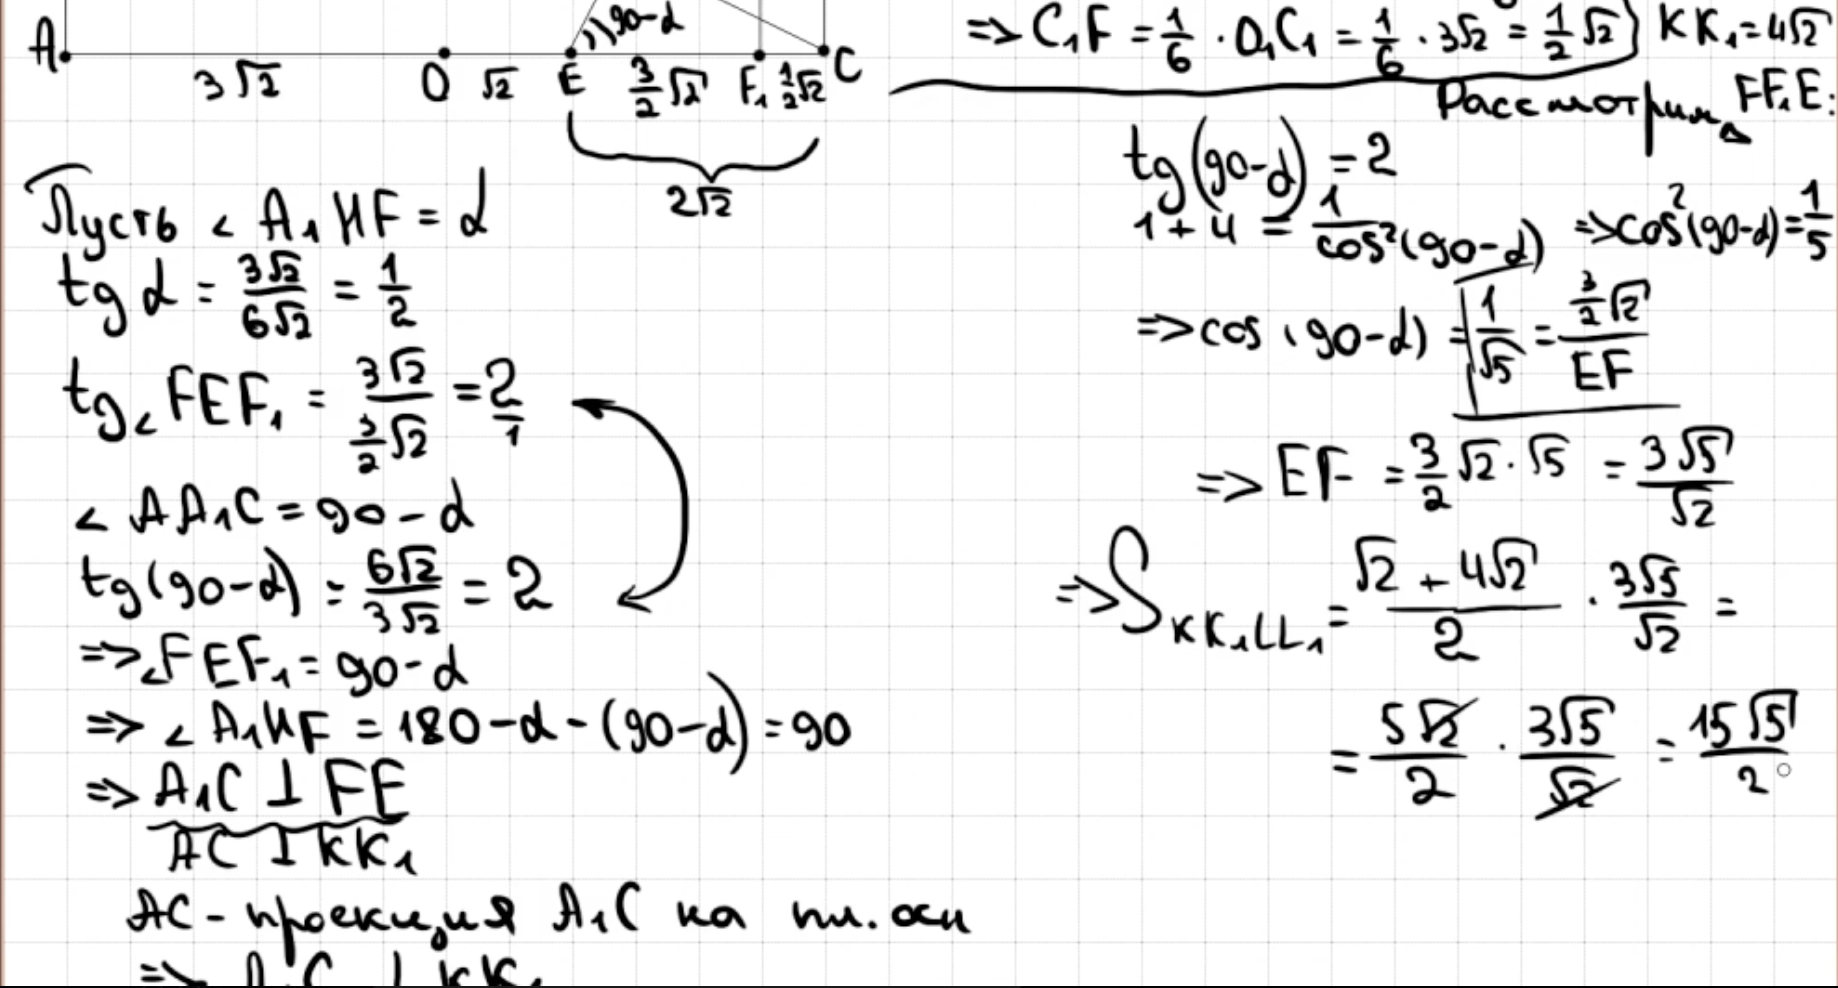 90-α
A 3√2 O √2 E 3/2√2 F₁ 1/2√2 C
2√2
Пусть < A₁HF = α
tg α = 3√2/6√2 = 1/2
tg < FEF₁ = 3√2/(3/2√2) = 2/1
< AA₁C = 90-α
tg(90-α) = 6√2/3√2 = 2
=> < FEF₁ = 90-α
=> < A₁HF = 180-α-(90-α) = 90
=> A₁C ⊥ FE
AC ⊥ KK₁
AC - проекция A₁C на пл. осн
=> A₁C ⊥ KK₁
=> C₁F = 1/6 · O₁C₁ = 1/6 · 3√2 = 1/2 √2 KK₁=4√2
Рассмотрим △ FF₁E:
tg(90-α) = 2
1+4 = 1/cos²(90-α) => cos²(90-α) = 1/5
=> cos(90-α) = 1/√5 = 3/2√2/EF
=> EF = 3/2 √2·√5 = 3√5/√2
=> S KK₁LL₁ = √2+4√2/2 · 3√5/√2 =
= 5√2/2 · 3√5/√2 = 15√5/2